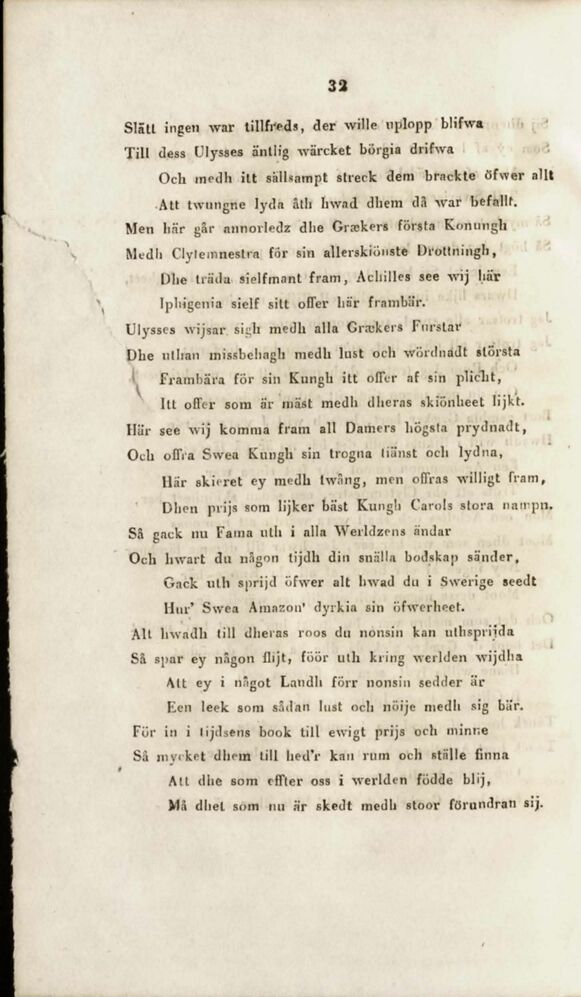 32
Slätt ingen war tillfreds, der wille uplopp blifwa
Till dess Ulysses äntlig wärcket börgia drifwa
Och medh itt sällsampt streck dem brackte öfwer allt
Att twungne lyda åth hwad dhem då war befallt.
Men här går annorledz dhe Grækers första Konungh
Medh Clytemnestra för sin allerskiönste Drottningh,
Dhe träda sielfmant fram, Achilles see wij här
Iphigenia sielf sitt offer här frambär.
Ulysses wijsar sigh medh alla Grækers Furstar
Dhe uthan missbehagh medh lust och wördnadt största
Frambära för sin Kungh itt offer af sin plicht,
Itt offer som är mäst medh dheras skiönheet lijkt.
Här see wij komma fram all Damers högsta prydnadt,
Och offra Swea Kungh sin trogna tiänst och lydna,
Här skieret ey medh twång, men offras willigt fram,
Dhen prijs som lijker bäst Kungh Carols stora nampn.
Så gack nu Fama uth i alla Werldzens ändar
Och hwart du någon tijdh din snälla bodskap sänder,
Gack uth sprijd öfwer alt hwad du i Swerige seedt
Hur' Swea Amazon' dyrkia sin öfwerheet.
Alt hwadh till dheras roos du nonsin kan uthsprijda
Så spar ey någon flijt, föör uth kring werlden wijdha
Att ey i något Landh förr nonsin sedder är
Een leek som sådan lust och nöije medh sig bär.
För in i tijdsens book till ewigt prijs och minne
Så mycket dhem till hed'r kan rum och ställe finna
Att dhe som effter oss i werlden födde blij,
Må dhet som nu är skedt medh stoor förundran sij.